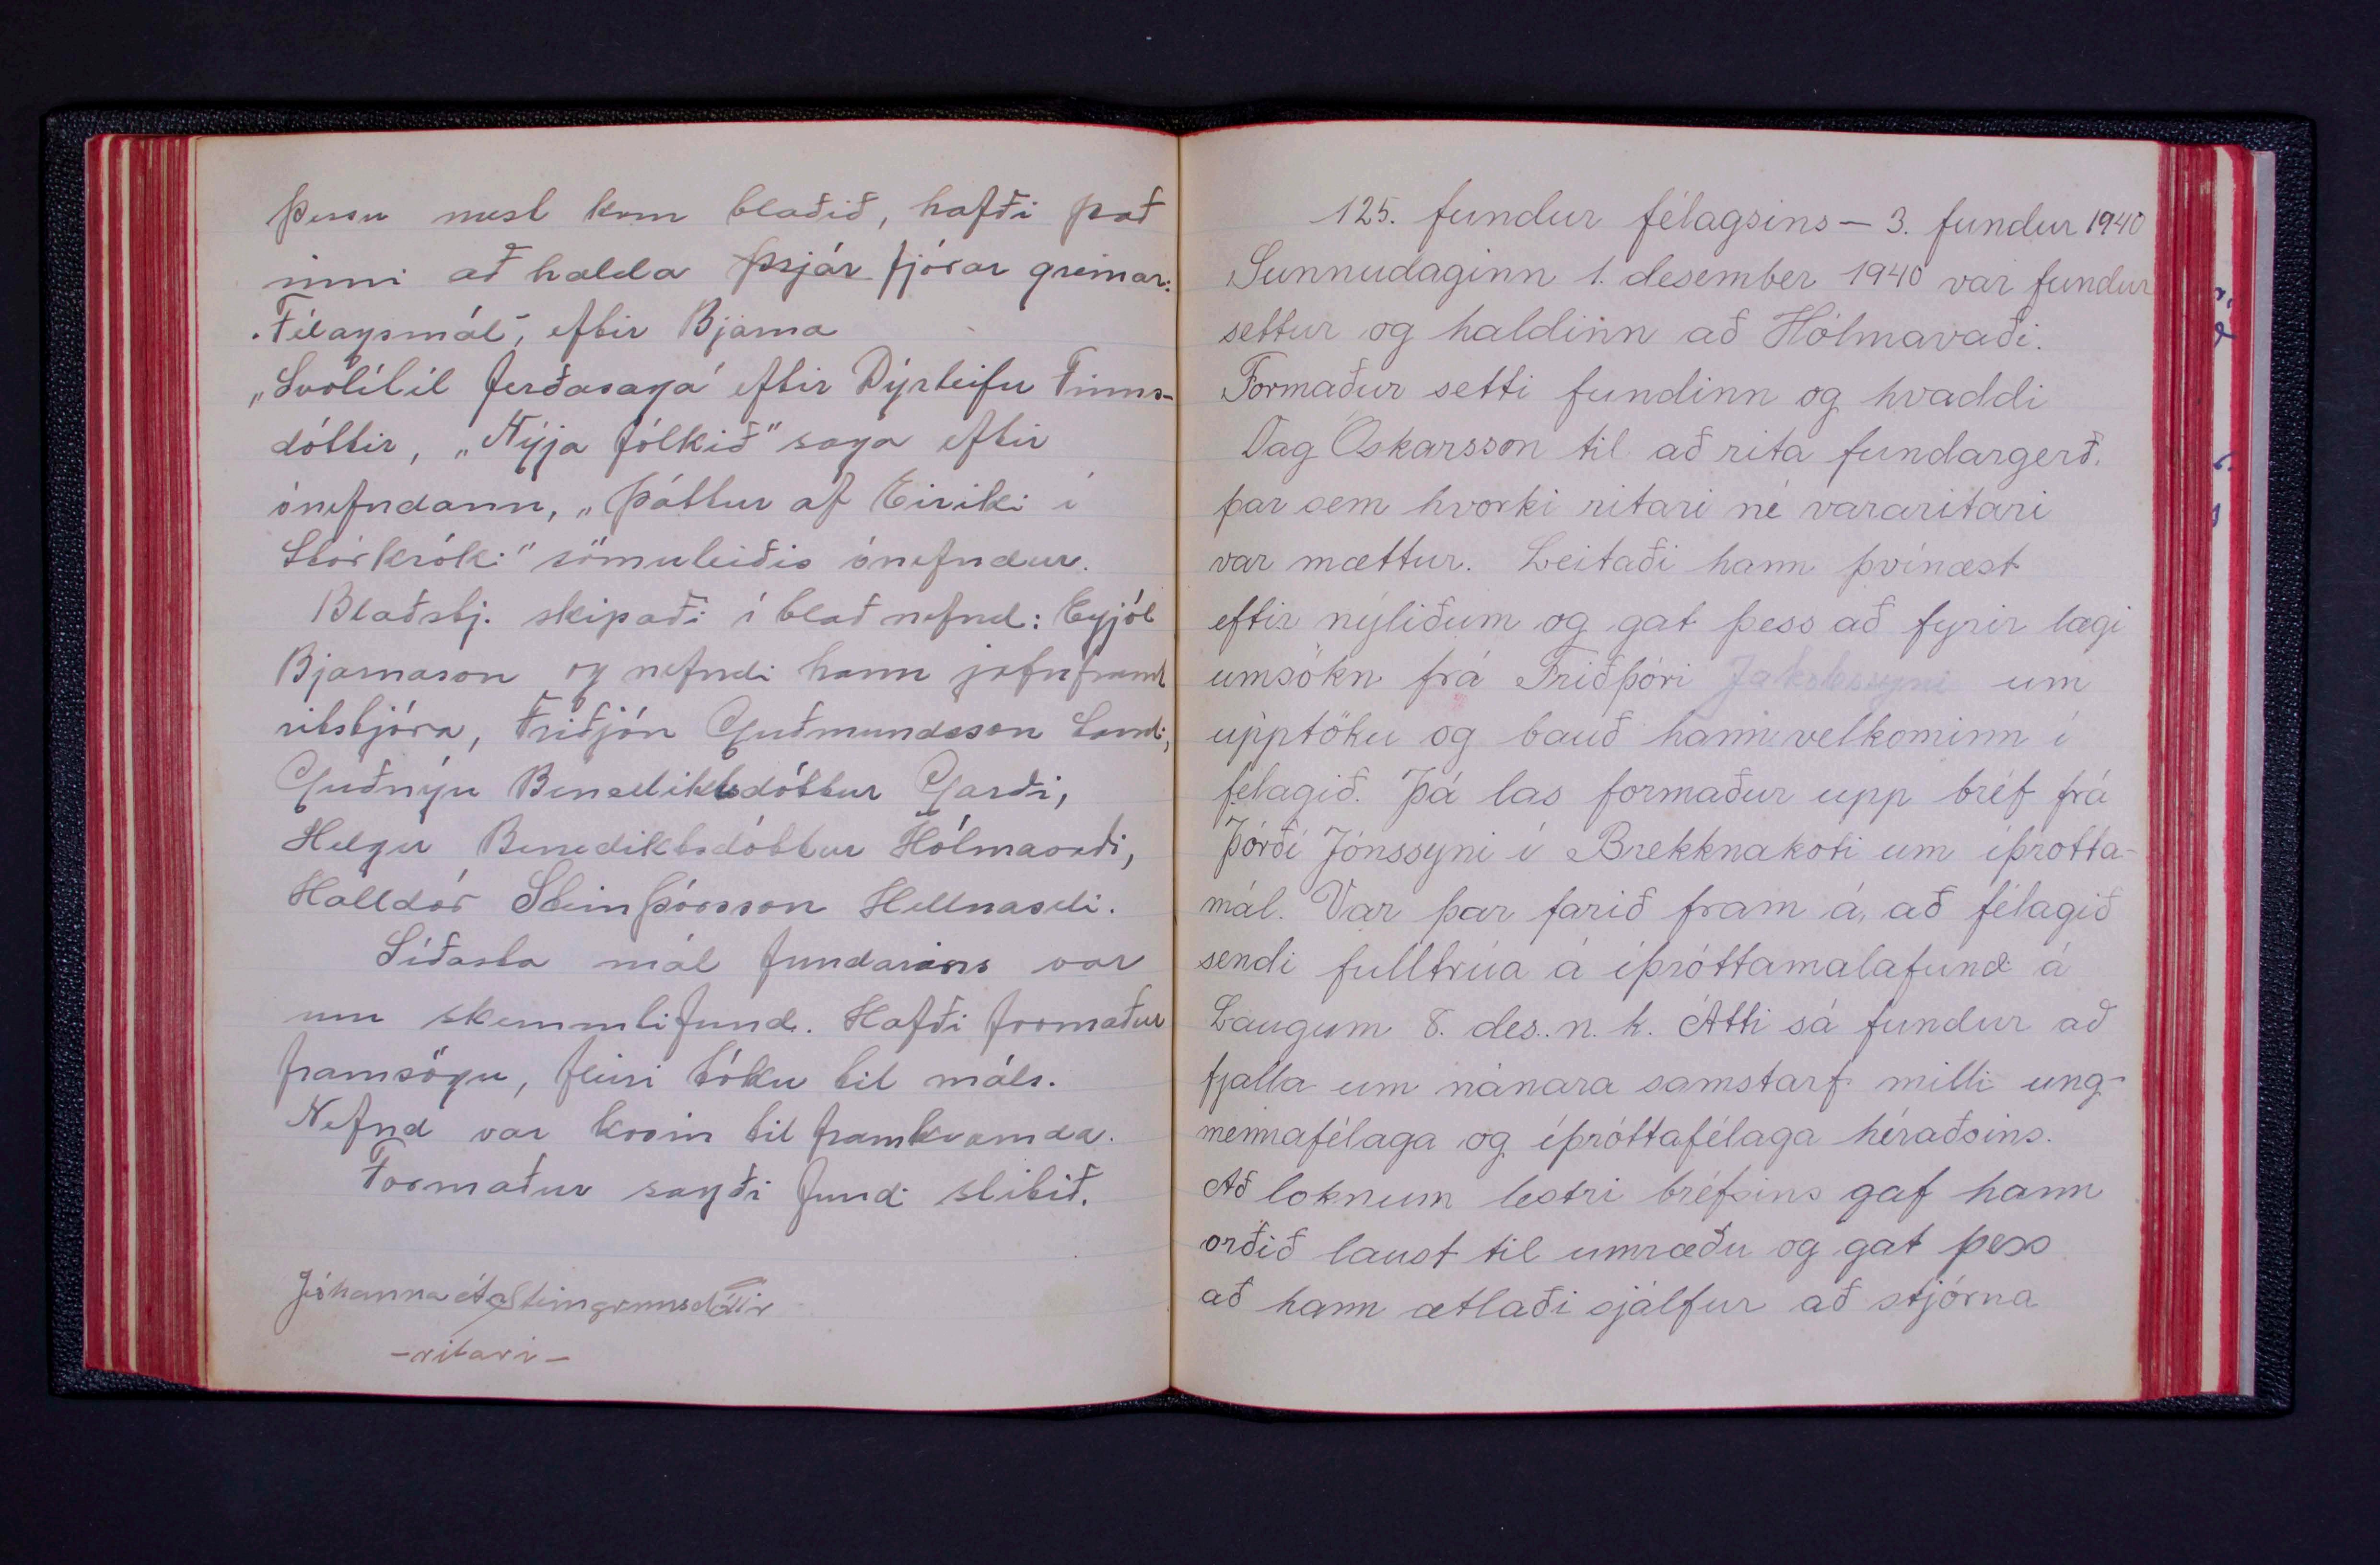 þessu næst kom blaðið, hafði það
inni að halda þrjár fjórar greinar:
„Félagsmál“, eftir Bjarna
„Svolítil ferðasaga“ eftir Dýrleifu Finns-
dóttir, „Nýja fólkið“ saga eftir
ónefndann, „Þáttur af Eiríki í
Stórkróki“ sömuleiðis ónefndur.
Blaðstj. skipaði í blaðnefnd: Eyjólf
Bjarnason og nefndi hann jafnframt
ritstjóra, Friðjón Guðmundsson Sandi,
Guðnýu Benediktsdóttur Garði,
Helgu Benediktsdóttur Hólmavaði,
Halldór Steinþórsson Hellnaseli.
Síðasta mál fundarins var
um skemmtifund. Hafði formaður
framsögu, fleiri tóku til máls.
Nefnd var kosin til framkvæmda.
Formaður sagði fundi slitið.
Jóhanna Steingrímsdóttir
-ritari-
125. fundur félagsins - 3. fundur 1940
Sunnudaginn 1. desember 1940 var fundur
settur og haldinn að Hólmavaði.
Formaður setti fundinn og hvaddi
Dag Óskarsson til að rita fundargerð,
þar sem hvorki ritari né vararitari
var mættur. Leitaði hann þvínæst
eftir nýliðum og gat þess að fyrir lægi
umsókn frá Friðþóri Jakobssyni um
upptöku og bauð hann velkominn í
félagið. Þá las formaður upp bréf frá
Þórði Jónssyni í Brekknakoti um íþrótta-
mál. Var þar farið fram á, að félagið
sendi fulltrúa á íþróttamalafund á
Laugum 8. des. n. k. Átti sá fundur að
fjalla um nánara samstarf milli ung-
mennafélaga og íþróttafélaga héraðsins.
Að loknum lestri bréfsins gaf hann
orðið laust til umræðu og gat þess
að hann ætlaði sjálfur að stjórna